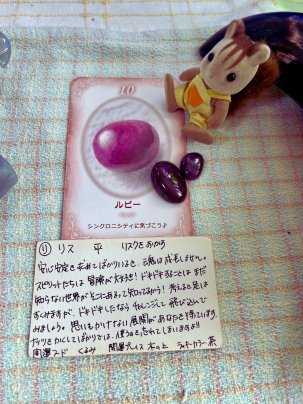 10
ルビー
シンクロニシティに気づこう♪
リ リス 平 リスクをおかす
安心安定を求めてばかりいると、魂は成長しません。
スピリットたちは冒険が大好き! ドキドキすることは まだ
知らない世界が そこにあるって知ってるから! 考えると足は
すくみますが、ドキドキしたなら チャレンジして 飛び込んで
みましょう。思いもかけない 展開が あなたを待っています。
ナッツをかくしてばかりでは、埋めた事も忘れてしまいますよ!!
開運フード くるみ 開運プレイス 木の上 ラッキーカラー 茶